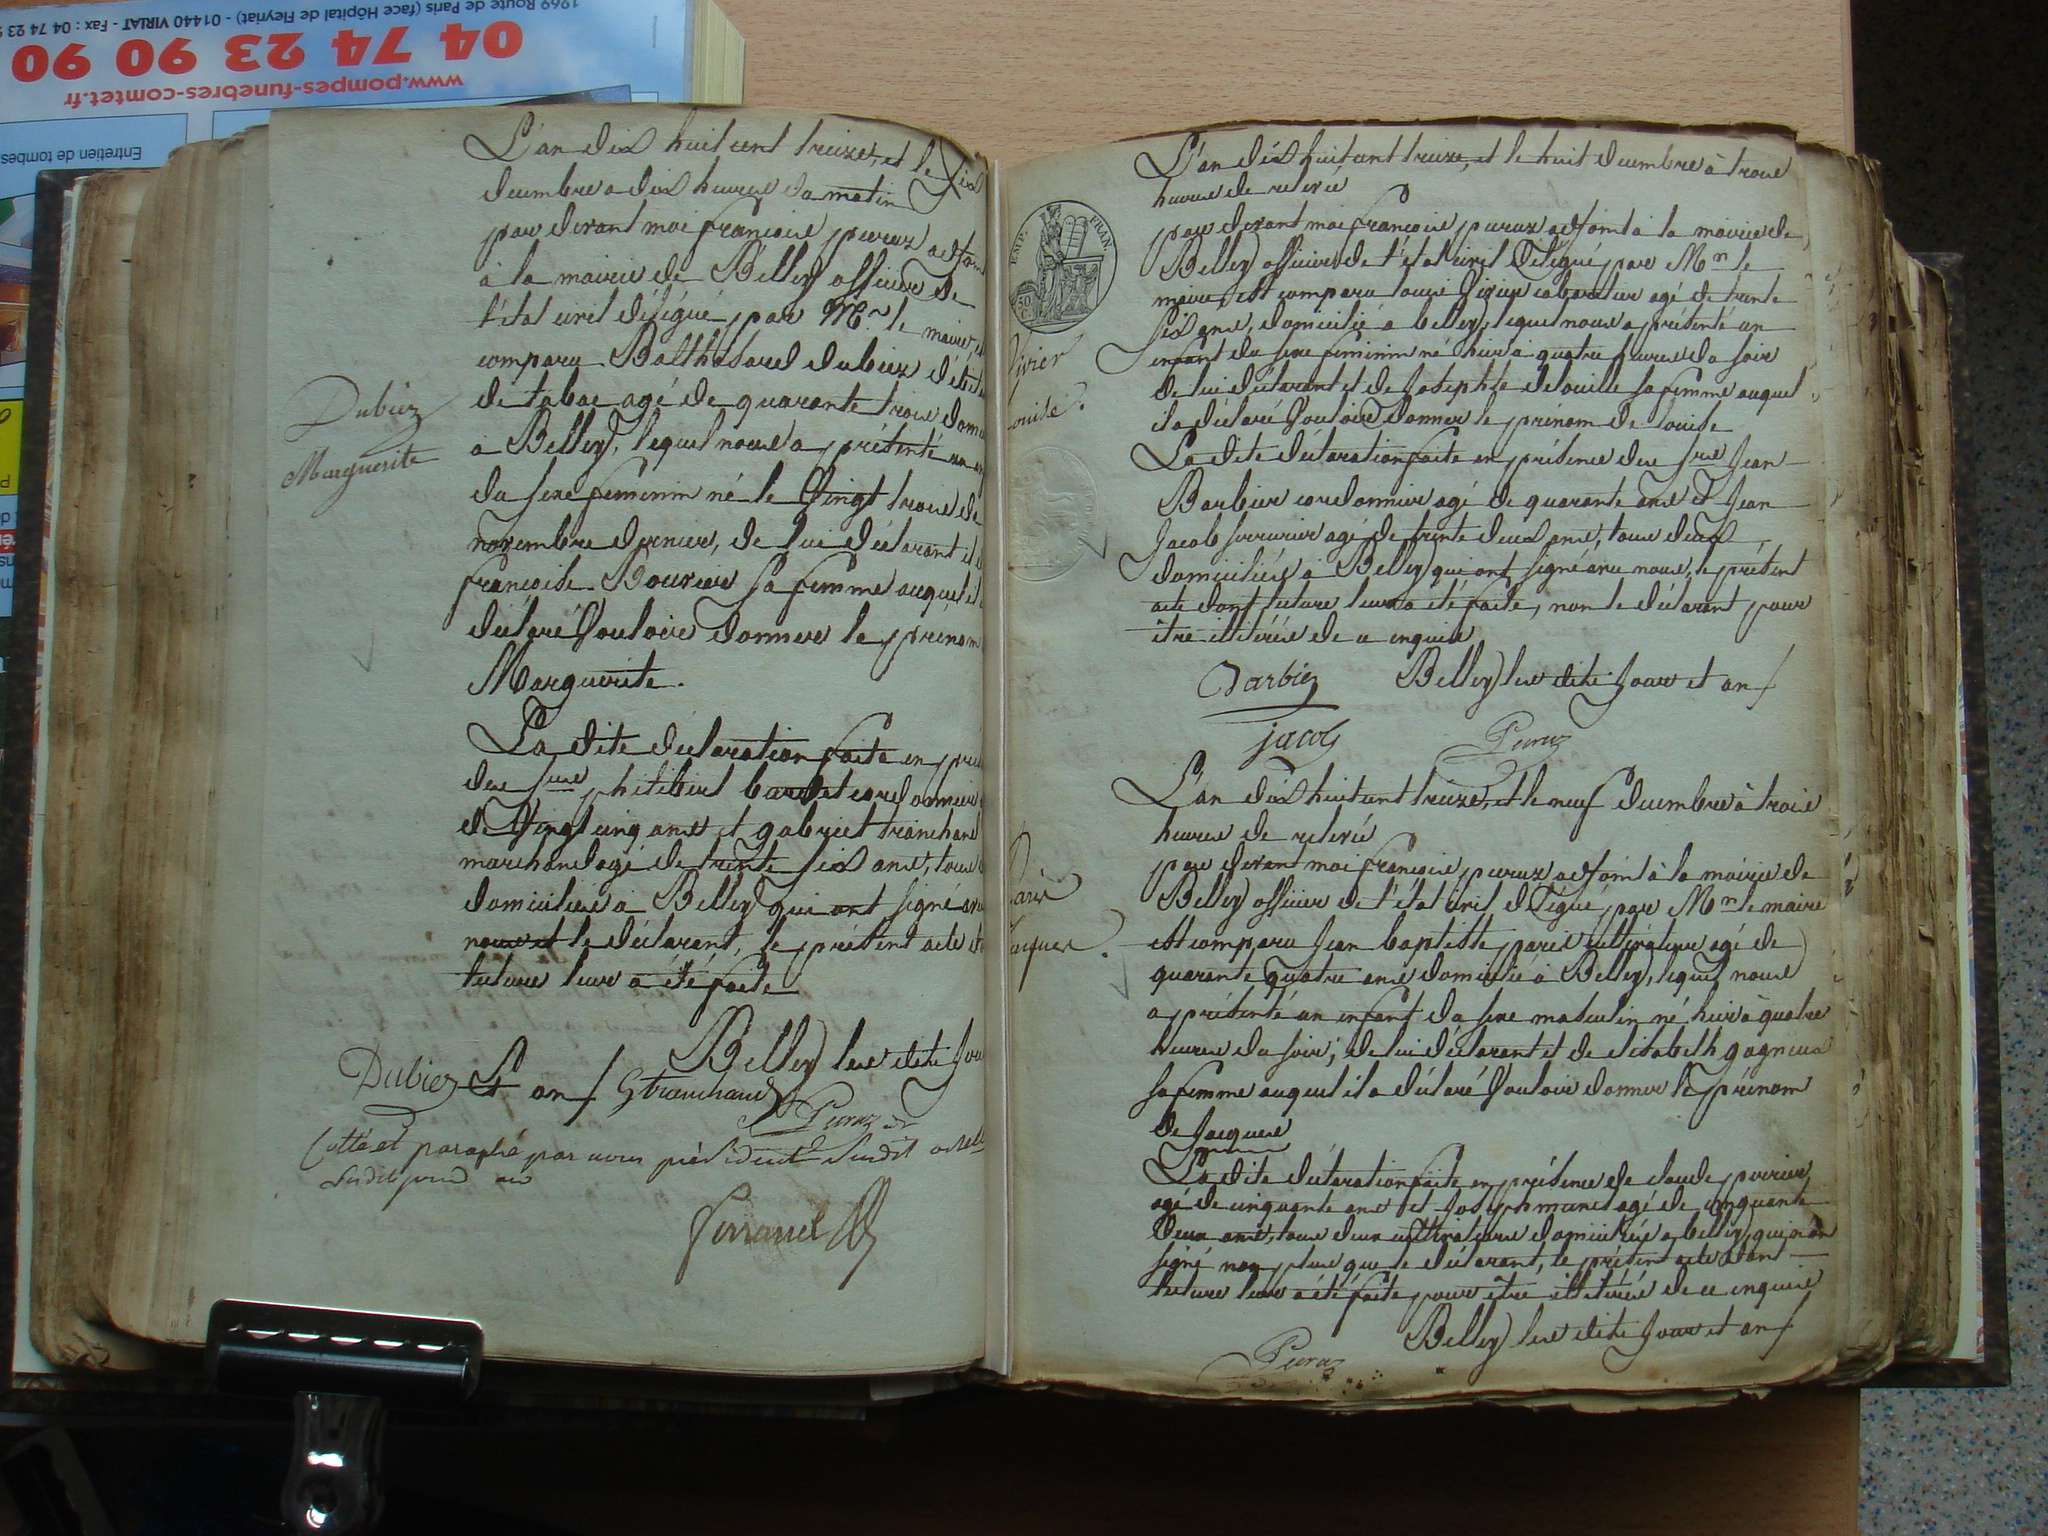 1969 Route de Paris (face Hôpital de Fleyriat) - 01440 VIRIAT - Fax : 04 74 23
04 74 23 90 90
www.pompes-funebres-comtet.fr
Entretien de tombes
L'an dix huit cent treize, et le dix
decembre a dix heures du matin
par devant moi françois peruz adjoint
à la mairie de Belley officier de
l'état civil délégué par Mr. le maire, est
comparu Balthasard dubiez débit
de tabac agé de quarante trois
a Belley, lequel nous a présenté un
du sexe feminin né le vingt trois de
novembre dernier, de lui déclarant et
françoise Bouvier sa femme auquel il
déclaré vouloir donner le prénom
Marguerite.
Dubiez
Marguerite
La dite déclaration faite en
des srs philibert cordonnier
de vingt cinq ans et gabriel tranchand
marchand agé de trente six ans, tous
domiciliés a Belley qui ont signé avec
nous et le déclarant, le présent acte
lecture leur a été faite
Belley les dits jour
Dubiez et an Gtranchand
Peruz
Cotté et paraphé par nous président susdit
susdits jour et an
Ferrand
L'an dix huit cent treize, et le huit decembre à trois
heures de relevée
EMP. FRAN.
50 C.
par devant moi françois peruz adjoint à la mairie de
Belley officier de l'état civil délégué par Mr. le
maire est comparu louis vivier cabaretier agé de trente
six ans, domicilié a belley, lequel nous a présenté un
enfant du sexe feminin né hier à quatre heures du soir
de lui déclarant et de Josephte sa femme auquel
il a déclaré vouloir donner le prénom de louise
ivier
ouise.
La dite déclaration faite en présence des srs Jean
Barbier cordonnier agé de quarante ans et Jean
Jacob serrurier agé de trente deux ans, tous deux
domiciliés a Belley qui ont signé avec nous, le présent
acte dont lecture leur a été faite, non le déclarant pour
être illitéré de ce enquis
Belley les dits jour et an
Barbier
jacob
Peruz
L'an dix huit cent treize, et le neuf decembre à trois
heures de relevée
par devant moi françois peruz adjoint à la mairie de
Belley officier de l'état civil délégué par Mr. le maire
est comparu Jean baptiste paris cultivateur agé de
quarante quatre ans domicilié à Belley, lequel nous
a présenté un enfant du sexe masculin né hier à quatre
heures du soir; de lui déclarant et de elisabeth gagneux
sa femme auquel il a déclaré vouloir donner le prénom
de Jacques
aris
acques
La dite déclaration faite en présence de claude
agé de cinquante ans et Joseph agé de cinquante
deux ans, tous deux cultivateurs domiciliés a belley, qui n'ont
signé non plus que le déclarant, le présent acte dont
lecture leur a été faite pour être illitérés de ce enquis
Belley les dits jour et an
Peruz